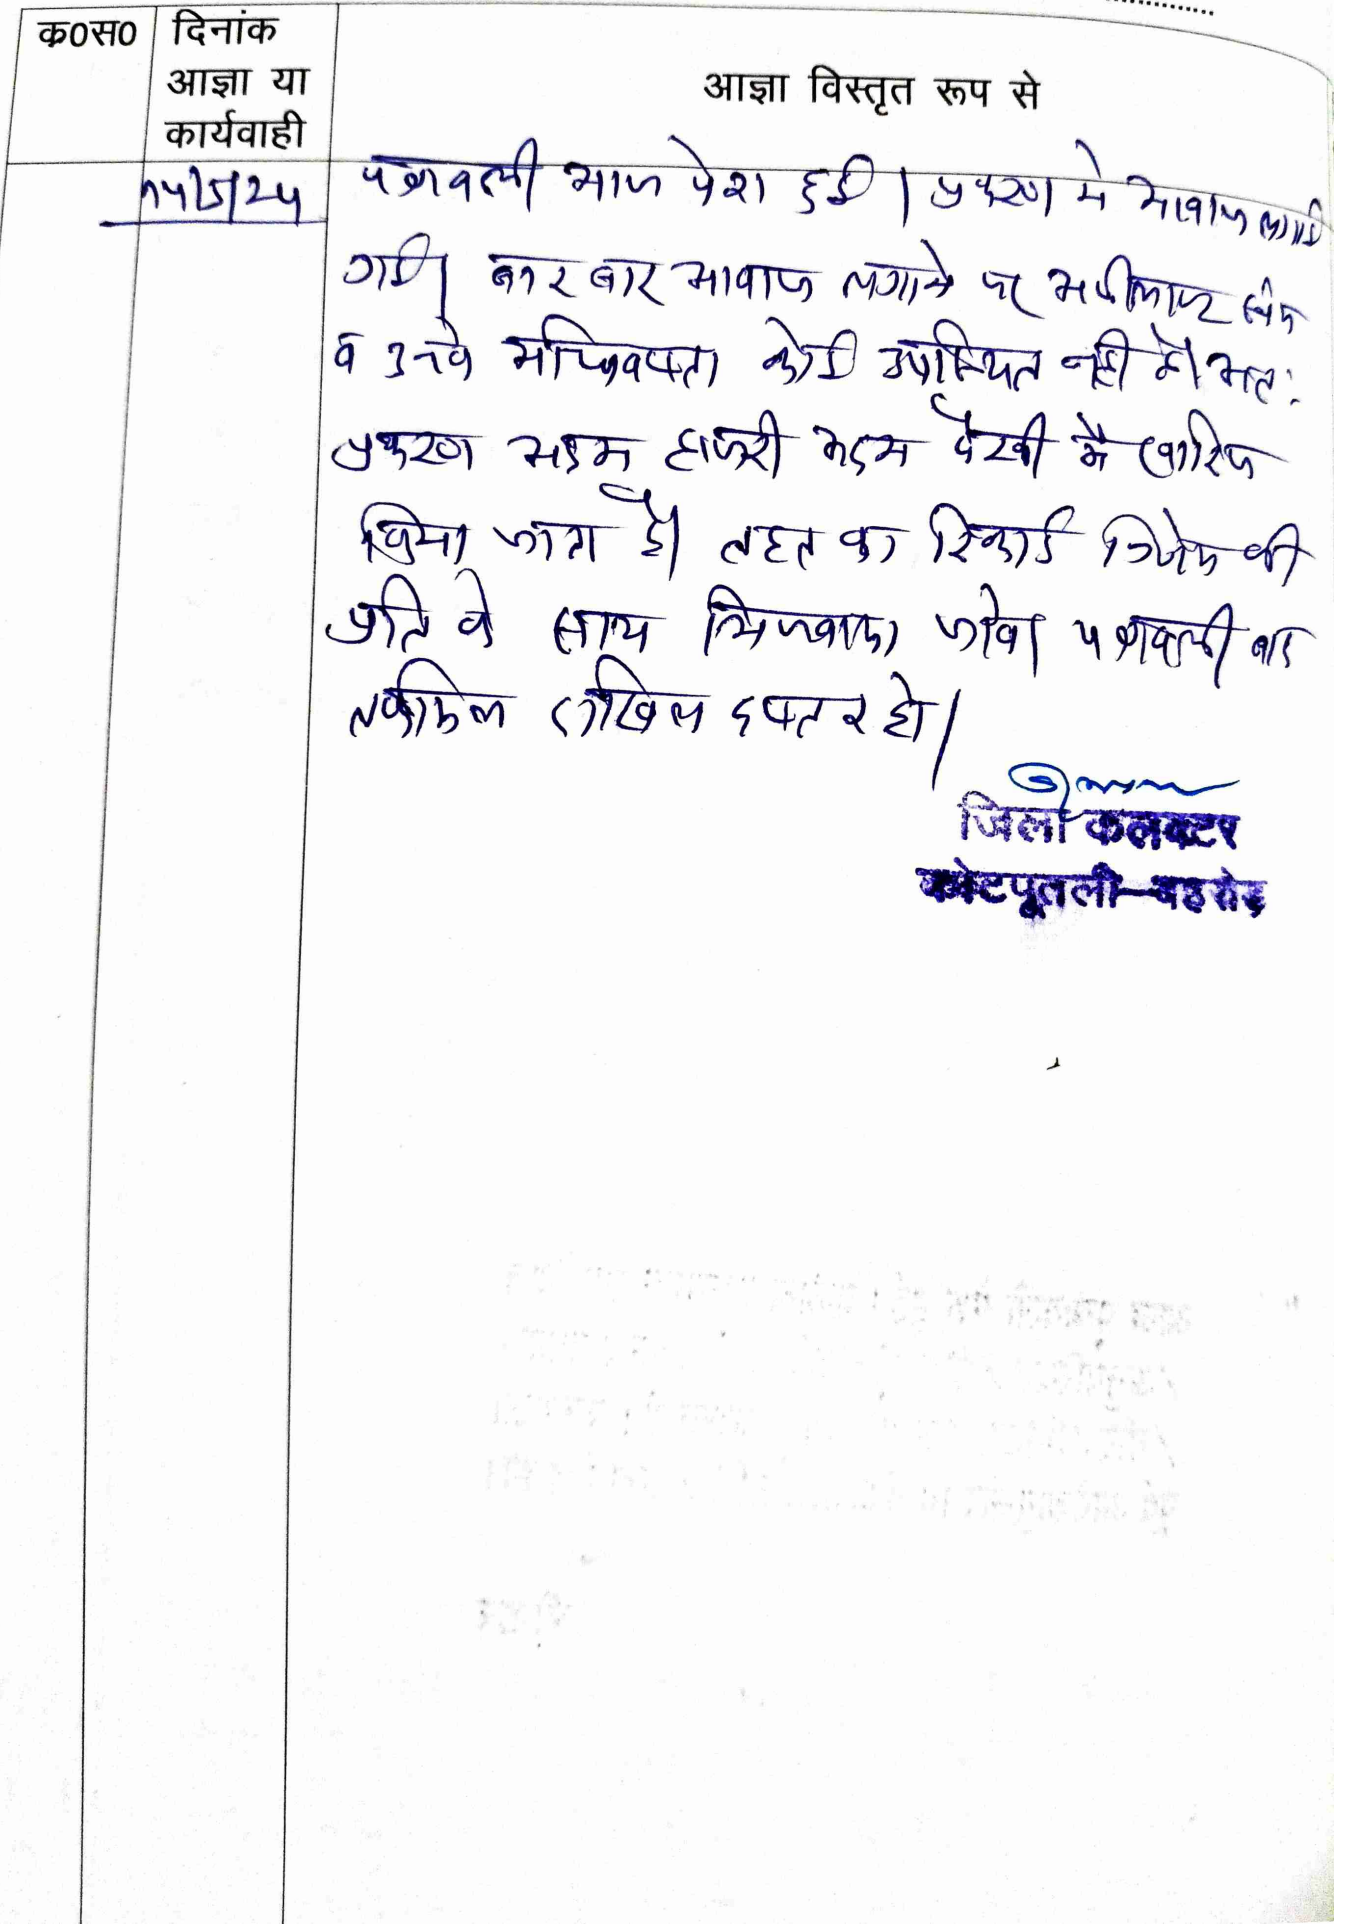 क0स0
दिनांक
आज्ञा या
कार्यवाही
आज्ञा विस्तृत रूप से
पत्रावली आज पेश हुई। प्रकरण मे आवाज लगाई
गई। बार बार आवाज लगाने पर अपीलाण्ट स्वंय
व उनके अधिवक्ता कोई उपस्थित नही है। अतः
प्रकरण अदम हाजरी अदम पैरवी मै खारिज
किया जाता है। तहत का रिकार्ड निर्णय की
प्रति के साथ भिजवाया जावे। पत्रावली बाद
तकमिल दाखिल दफ्तर हो।
जिला कलक्टर
कोटपूतली-बहरोड़